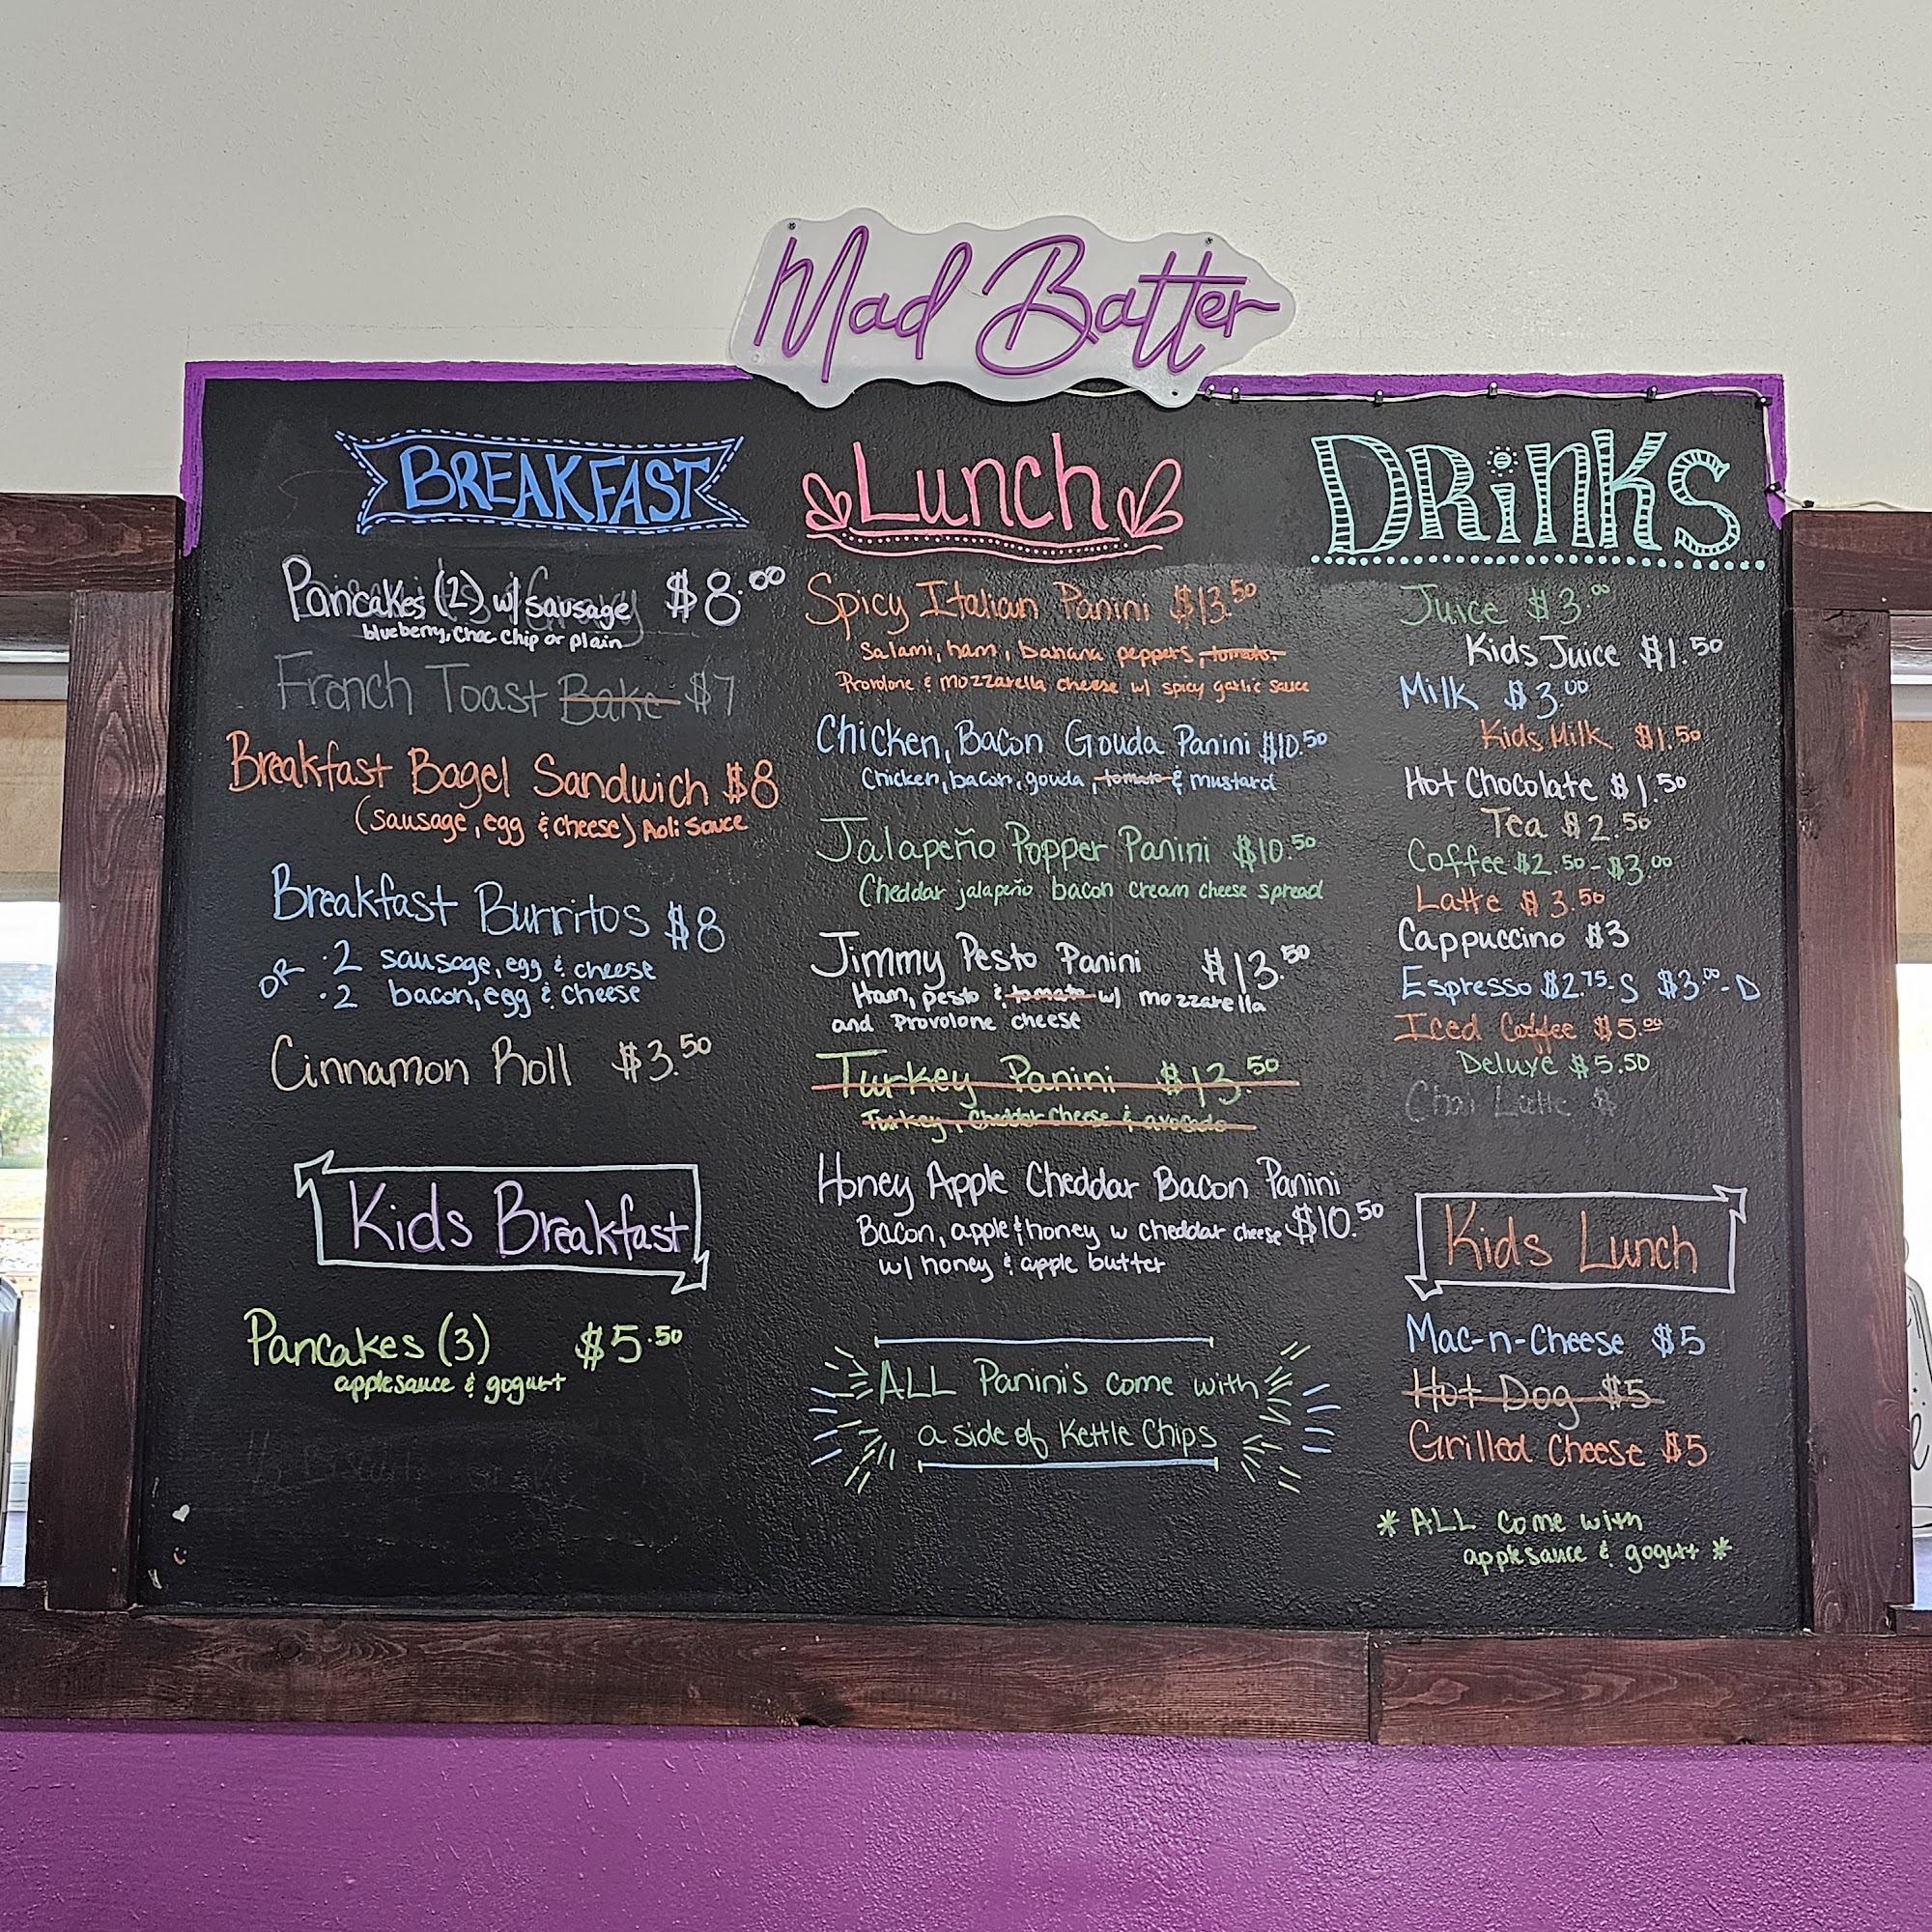 Mad Batter
BREAKFAST
Pancakes (2) w/ sausage $8.00
blueberry, choc chip or plain
French Toast Bake $7
Breakfast Bagel Sandwich $8
(sausage, egg & cheese) Aoli Sauce
Breakfast Burritos $8
or · 2 sausage, egg & cheese
· 2 bacon, egg & cheese
Cinnamon Roll $3.50
Kids Breakfast
Pancakes (3) $5.50
applesauce & gogurt
Lunch
Spicy Italian Panini $13.50
Salami, ham, banana peppers, tomato.
Provolone & mozzarella cheese w/ spicy garlic sauce
Chicken, Bacon Gouda Panini $10.50
Chicken, bacon, gouda, tomato & mustard
Jalapeño Popper Panini $10.50
Cheddar jalapeño bacon cream cheese spread
Jimmy Pesto Panini $13.50
Ham, pesto & tomato w/ mozzarella
and Provolone cheese
Turkey Panini $13.50
Turkey, Cheddar Cheese & avocado
Honey Apple Cheddar Bacon Panini
Bacon, apple & honey w cheddar cheese $10.50
w/ honey & apple butter
ALL Panini's come with
a side of Kettle Chips
DRiNKS
Juice $3.00
Kids Juice $1.50
Milk $3.00
Kids Milk $1.50
Hot Chocolate $1.50
Tea $2.50
Coffee $2.50-$3.00
Latte $3.50
Cappuccino $3
Espresso $2.75-S $3.00-D
Iced Coffee $5.00
Deluxe $5.50
Chai Latte $
Kids Lunch
Mac-n-Cheese $5
Hot Dog $5
Grilled Cheese $5
* ALL come with
applesauce & gogurt *